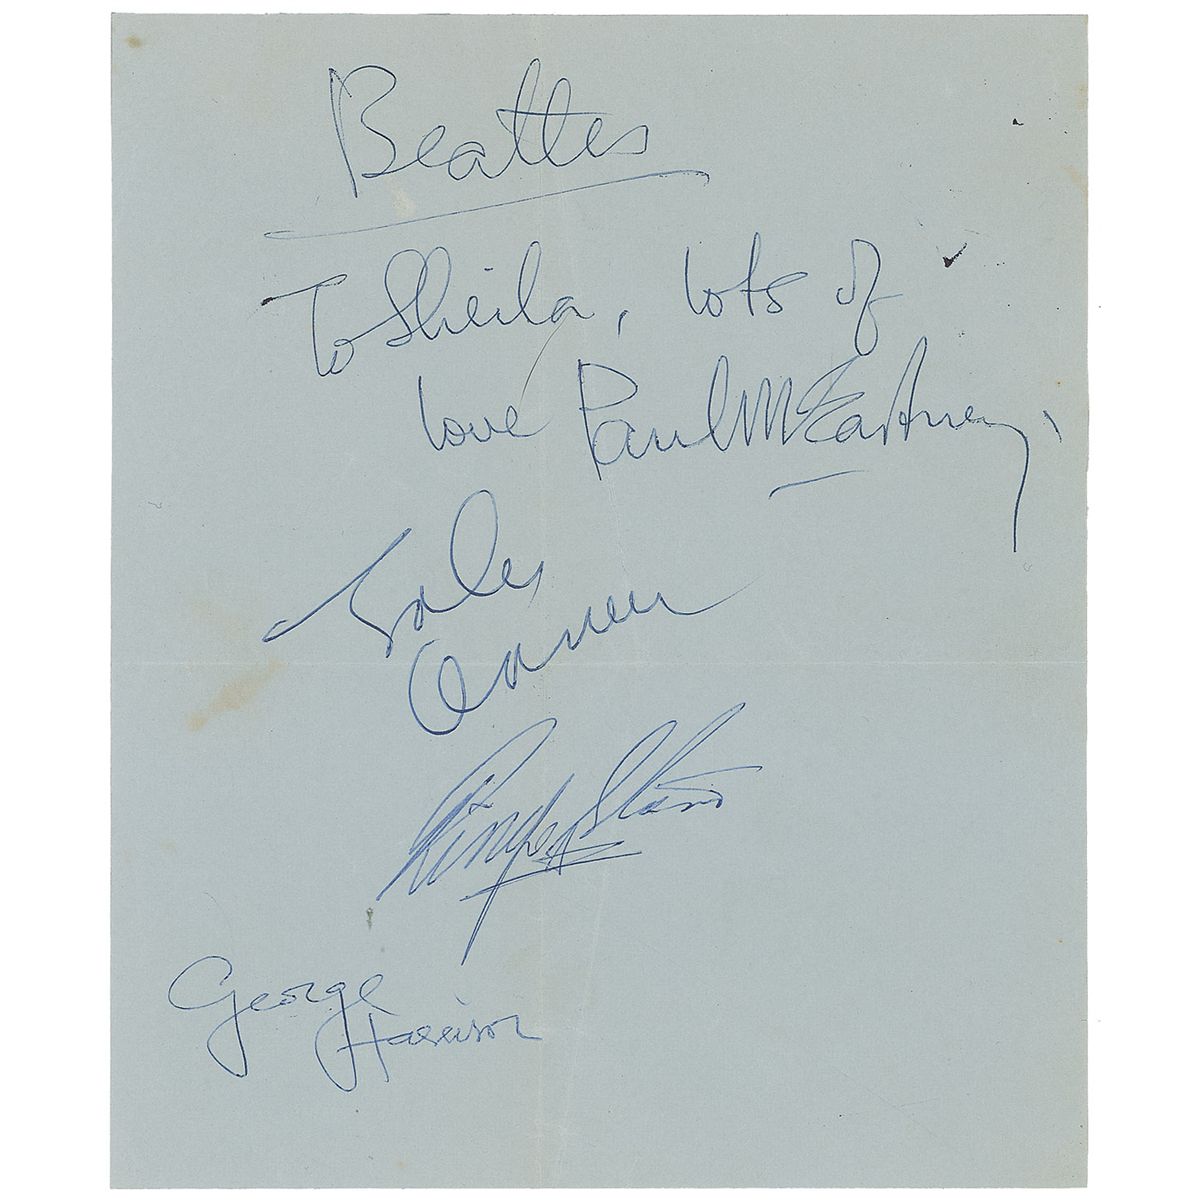 Beatles
To Sheila, lots of
love Paul McCartney
John
Lennon
Ringo Starr
George
Harrison